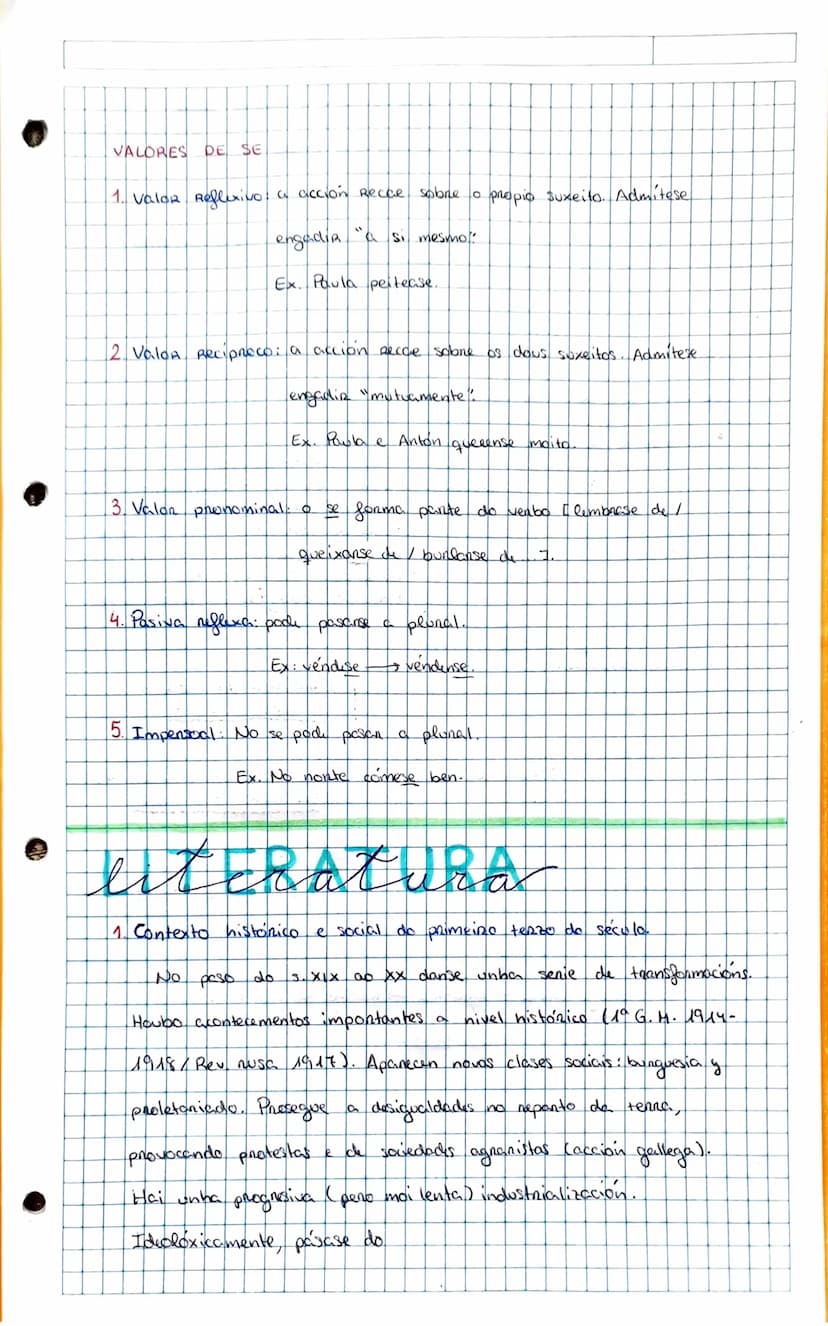 VALORES DE SE
1. Valor Reflexivo: a acción recae sobre o propio suxeito. Admítese
engadir "a si mesmo".
Ex. Paula peitease.
2. Valor Recíproco: a acción recae sobre os dous suxeitos. Admítese
engadir "mutuamente".
Ex. Paula e Antón querense moito.
3. Valor pronominal: o se forma parte do verbo [lembrase de /
queixarse de / burlarse de ].
4. Pasiva reflexa: pode pasarse a plural.
Ex: véndese → véndense.
5. Impersoal: No se pode pasar a plural.
Ex. No norte cómese ben.
LITERATURA
1. Contexto histórico e social do primeiro terzo do século.
No paso do s. XIX ao XX danse unha serie de transformacións.
Houbo acontecementos importantes a nivel histórico (1ª G.M. 1914-
1918 / Rev. rusa 1917). Aparecen novas clases sociais: burguesía y
proletariado. Prosegue a desigualdades no reparto da terra,
provocando protestas e de sociedades agraristas (acción gallega).
Hai unha progresiva (pero moi lenta) industrialización.
Ideolóxicamente, pásase do